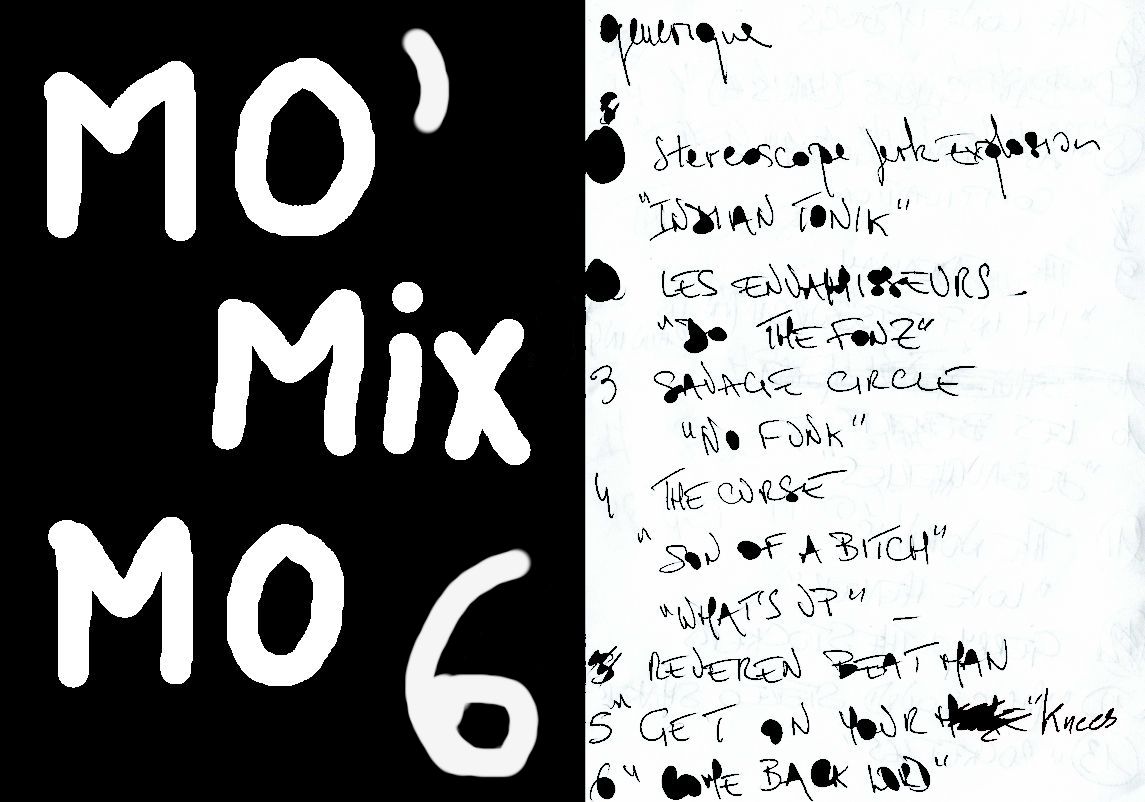 MO'
Mix
MO 6
generique
Stereoscope Jerk Explosion
"INDIAN TONIK"
LES ENVAHISSEURS -
"Do THE FONZ"
3 SAVAGE CIRCLE
"NO FUNK"
4 THE CURSE
"SON OF A BITCH"
"WHAT'S UP" -
REVEREN BEAT MAN
5 " GET ON YOUR "Knees
6 " COME BACK LORD"